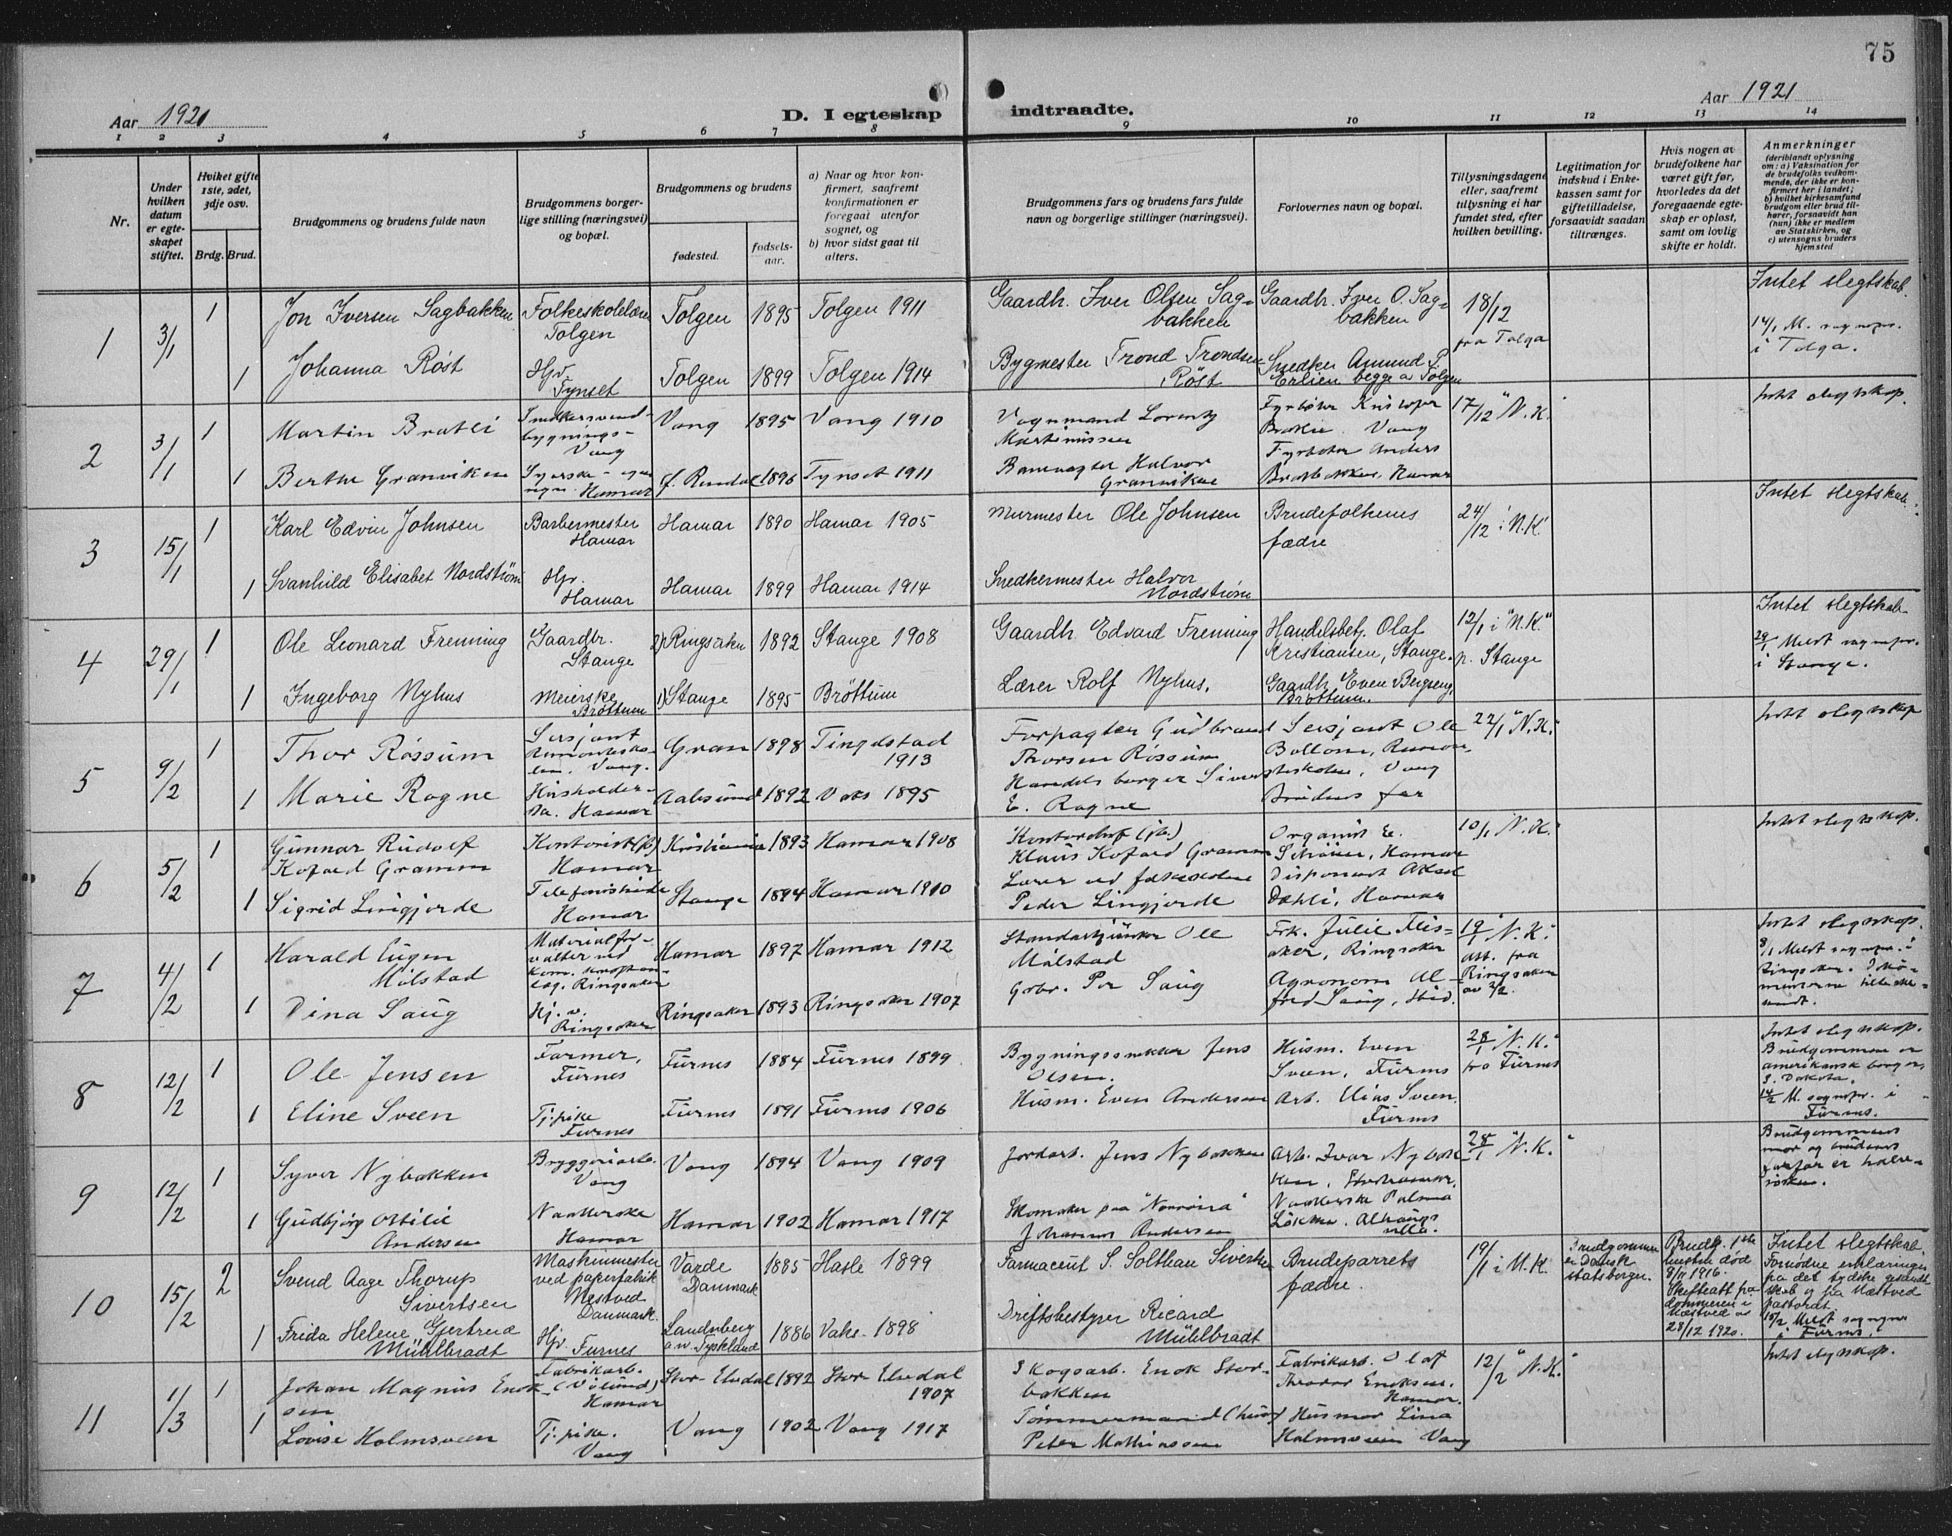 75
Aar 1921
D. I egteskap indtraadte.
Aar 1921
1 2 3 4 5 6 7 8 9 10 11 12 13 14
Nr.
Under hvilken datum er egteskapet stiftet.
Hviket gifte 1ste, 2det, 3dje osv.
Brdg. Brud.
Brudgommens og brudens fulde navn
Brudgommens borgerlige stilling (næringsvei) og bopæl.
Brudgommens og brudens
fødested.
fødselsaar.
a) Naar og hvor konfirmert, saafremt konfirmationen er foregaat utenfor sognet, og
b) hvor sidst gaat til alters.
Brudgommens fars og brudens fars fulde navn og borgerlige stillinger (næringsvei).
Forlovernes navn og bopæl.
Tillysningsdagene eller, saafremt tillysning ei har fundet sted, efter hvilken bevilling.
Legitimation for indskud i Enkekassen samt for giftetilladelse, forsaavidt saadan tiltrænges.
Hvis nogen av brudefolkene har været gift før, hvorledes da det foregaaende egteskap er opløst, samt om lovlig skifte er holdt.
Anmerkninger
(deriblandt oplysning om: a) Vaksination for de brudefolks vedkommende, der ikke er konfirmert her i landet; b) hvilket kirkesamfund brudgom eller brud tilhører, forsaavidt han (hun) ikke er medlem av Statskirken, og c) utensogns bruders hjemsted
1 3/1 1 Jon Iversen Sagbakken Folkeskolelærer Tolgen Tolgen 1895 Tolgen 1911 Gaardb. Iver Olsen Sagbakken Gaardbr. Iver O. Sagbakken 18/12 fra Tolga Intet slegtskab. 14/1 M. sognepr. i Tolga.
1 Johanna Røst Hjv. Tynset Tolgen 1899 Tolgen 1914 Bygmester Trond Trondsen Røst Snedker Amund P. Erlien begge a Tolgen
2 3/1 1 Martin Bratli Snekkersvend bygnings- Vang Vang 1895 Vang 1910 Vognmand Lorentz Martinussen Fyrbøter Kristofer Vang 17/12 "N. K." Intet slegtskap.
1 Berthe Granviken Syerske Hamar 1896 Tynset 1911 Banevogter Halvor Granviken Fyrbøter Anders Hamar
3 15/1 1 Karl Edvin Johnsen Barbermester Hamar Hamar 1890 Hamar 1905 Murmester Ole Johnsen Brudefolkenes fædre 24/12 i "N.K." Intet slegtskab.
1 Svanhild Elisabet Nordstrøm Hjv. Hamar Hamar 1899 Hamar 1914 Snedkermester Halvor Nordstrøm
4 29/1 1 Ole Leonard Frenning Gaardbr. Stange Ringsaker 1892 Stange 1908 Gaardb. Edvard Frenning Handelsbetj. Olaf Kristiansen, Stange. 12/1 i "N.K." p. Stange Intet slegtskab 29/1 Meldt sognepr. i Stange.
1 Ingeborg Nyhus Meierske Brøttum Stange 1895 Brøttum Lærer Rolf Nyhus. Gaardb. Even Bergseng, Brøttum.
5 9/2 1 Thor Røssum Sersjant Vang. Gran 1898 Tingelstad 1913 Forpagter Gudbrand Thorsen Røssum Sersjant Ole Vang 22/1 "N.K." Intet slegtskap
1 Marie Rogne Husholderske. Hamar Aalesund 1892 1895 Handelsborger Sivert E. Rogne Brudens far
6 5/2 1 Gunnar Rudolf Kofoed Gramm Kontorist Hamar Kristiania 1893 Hamar 1908 Klaus Kofoed Gramm Organist E. Hamar 10/1 N. K." Intet slegtskap.
1 Sigrid Lingjerde Telefonistinde Hamar Stange 1894 Hamar 1910 Lærer ved folkeskolen Peder Lingjerde Disponent Dahli, Hamar
7 4/2 1 Harald Eugen Milstad Materialforvalter ved Ringsaker Hamar 1897 Hamar 1912 Standartjunker Ole Milstad Frk. Julie Ringsaker 19/1 "N. K." att. fra Ringsaker av 2/2. Intet slegtskap. 8/2 Meldt sognepr. i Ringsaker.
1 Dina Saug Hj. v. Ringsaker Ringsaker 1893 Ringsaker 1907 Gbr. Per Saug Agronom Alfred Saug, ibid.
8 12/2 1 Ole Jensen Farmer, Furnes Furnes 1884 Furnes 1899 Bygningssnekker Jens Olsen. Husm. Even Sveen, Furnes 28/1 "N. K." fra Furnes Intet slegtskap. Brudgommen er amerikansk borger, S. Dakota. 14/2 M. sognepr. i Furnes.
1 Eline Sveen Tj.pike Furnes Furnes 1891 Furnes 1906 Husm. Even Andersen Arb. Sveen Furnes
9 12/2 1 Syver Nybakken Bryggeriarb. Vang Vang 1894 Vang 1909 Jordarb. Jens Nybakken Arb. Ivar Nybakken, 28/1 "N. K." Brudgommens mor og brudens farfar er halvsøsken.
1 Gudbjørg Ottilie Andersen Hamar Hamar 1902 Hamar 1917 Skomaker paa "Norrøna" Johannes Andersen Palma
10 15/2 2 Svend Aage Thorup Sivertsen Maskinmester ved papirfabrik Nestved Danmark. Varde Danmark 1885 Hasle 1899 Farmaceut S. Solthau Sivertsen Brudeparrets fædre. 19/1 i N.K. Brudgommen er Dansk statsborger. Brudg. 1ste hustru død 8/11 1916. Skifteatt fra dommeren i Næstved av 28/12 1920. Intet slegtskab. Fornødne erklæringer fra det tydske gesandtskab og fra Næstved pastorat. 18/2 Meldt sognepr i Furnes.
1 Frida Helene Gjertrud Mühlbradt Hjv. Furnes Landsberg a. W. Tyskland 1886 1898 Driftsbestyrer Ricard Mühlbradt
11 1/3 1 Johan Magnus Enoksen Fabrikarb. (Vølund) Hamar Stor Elvdal 1892 Stor Elvdal 1907 Skogsarb. Enok Storbakken Fabrikarb. Olaf Teodor Eriksen. Hamar. 12/2 "N.K." Intet slegtskap.
1 Lovise Holmsveen Tj.pike. Vang Vang 1902 Vang 1917 Tømmermand (hus) Peter Mathiassen Husmor Lina Holmsveen Vang